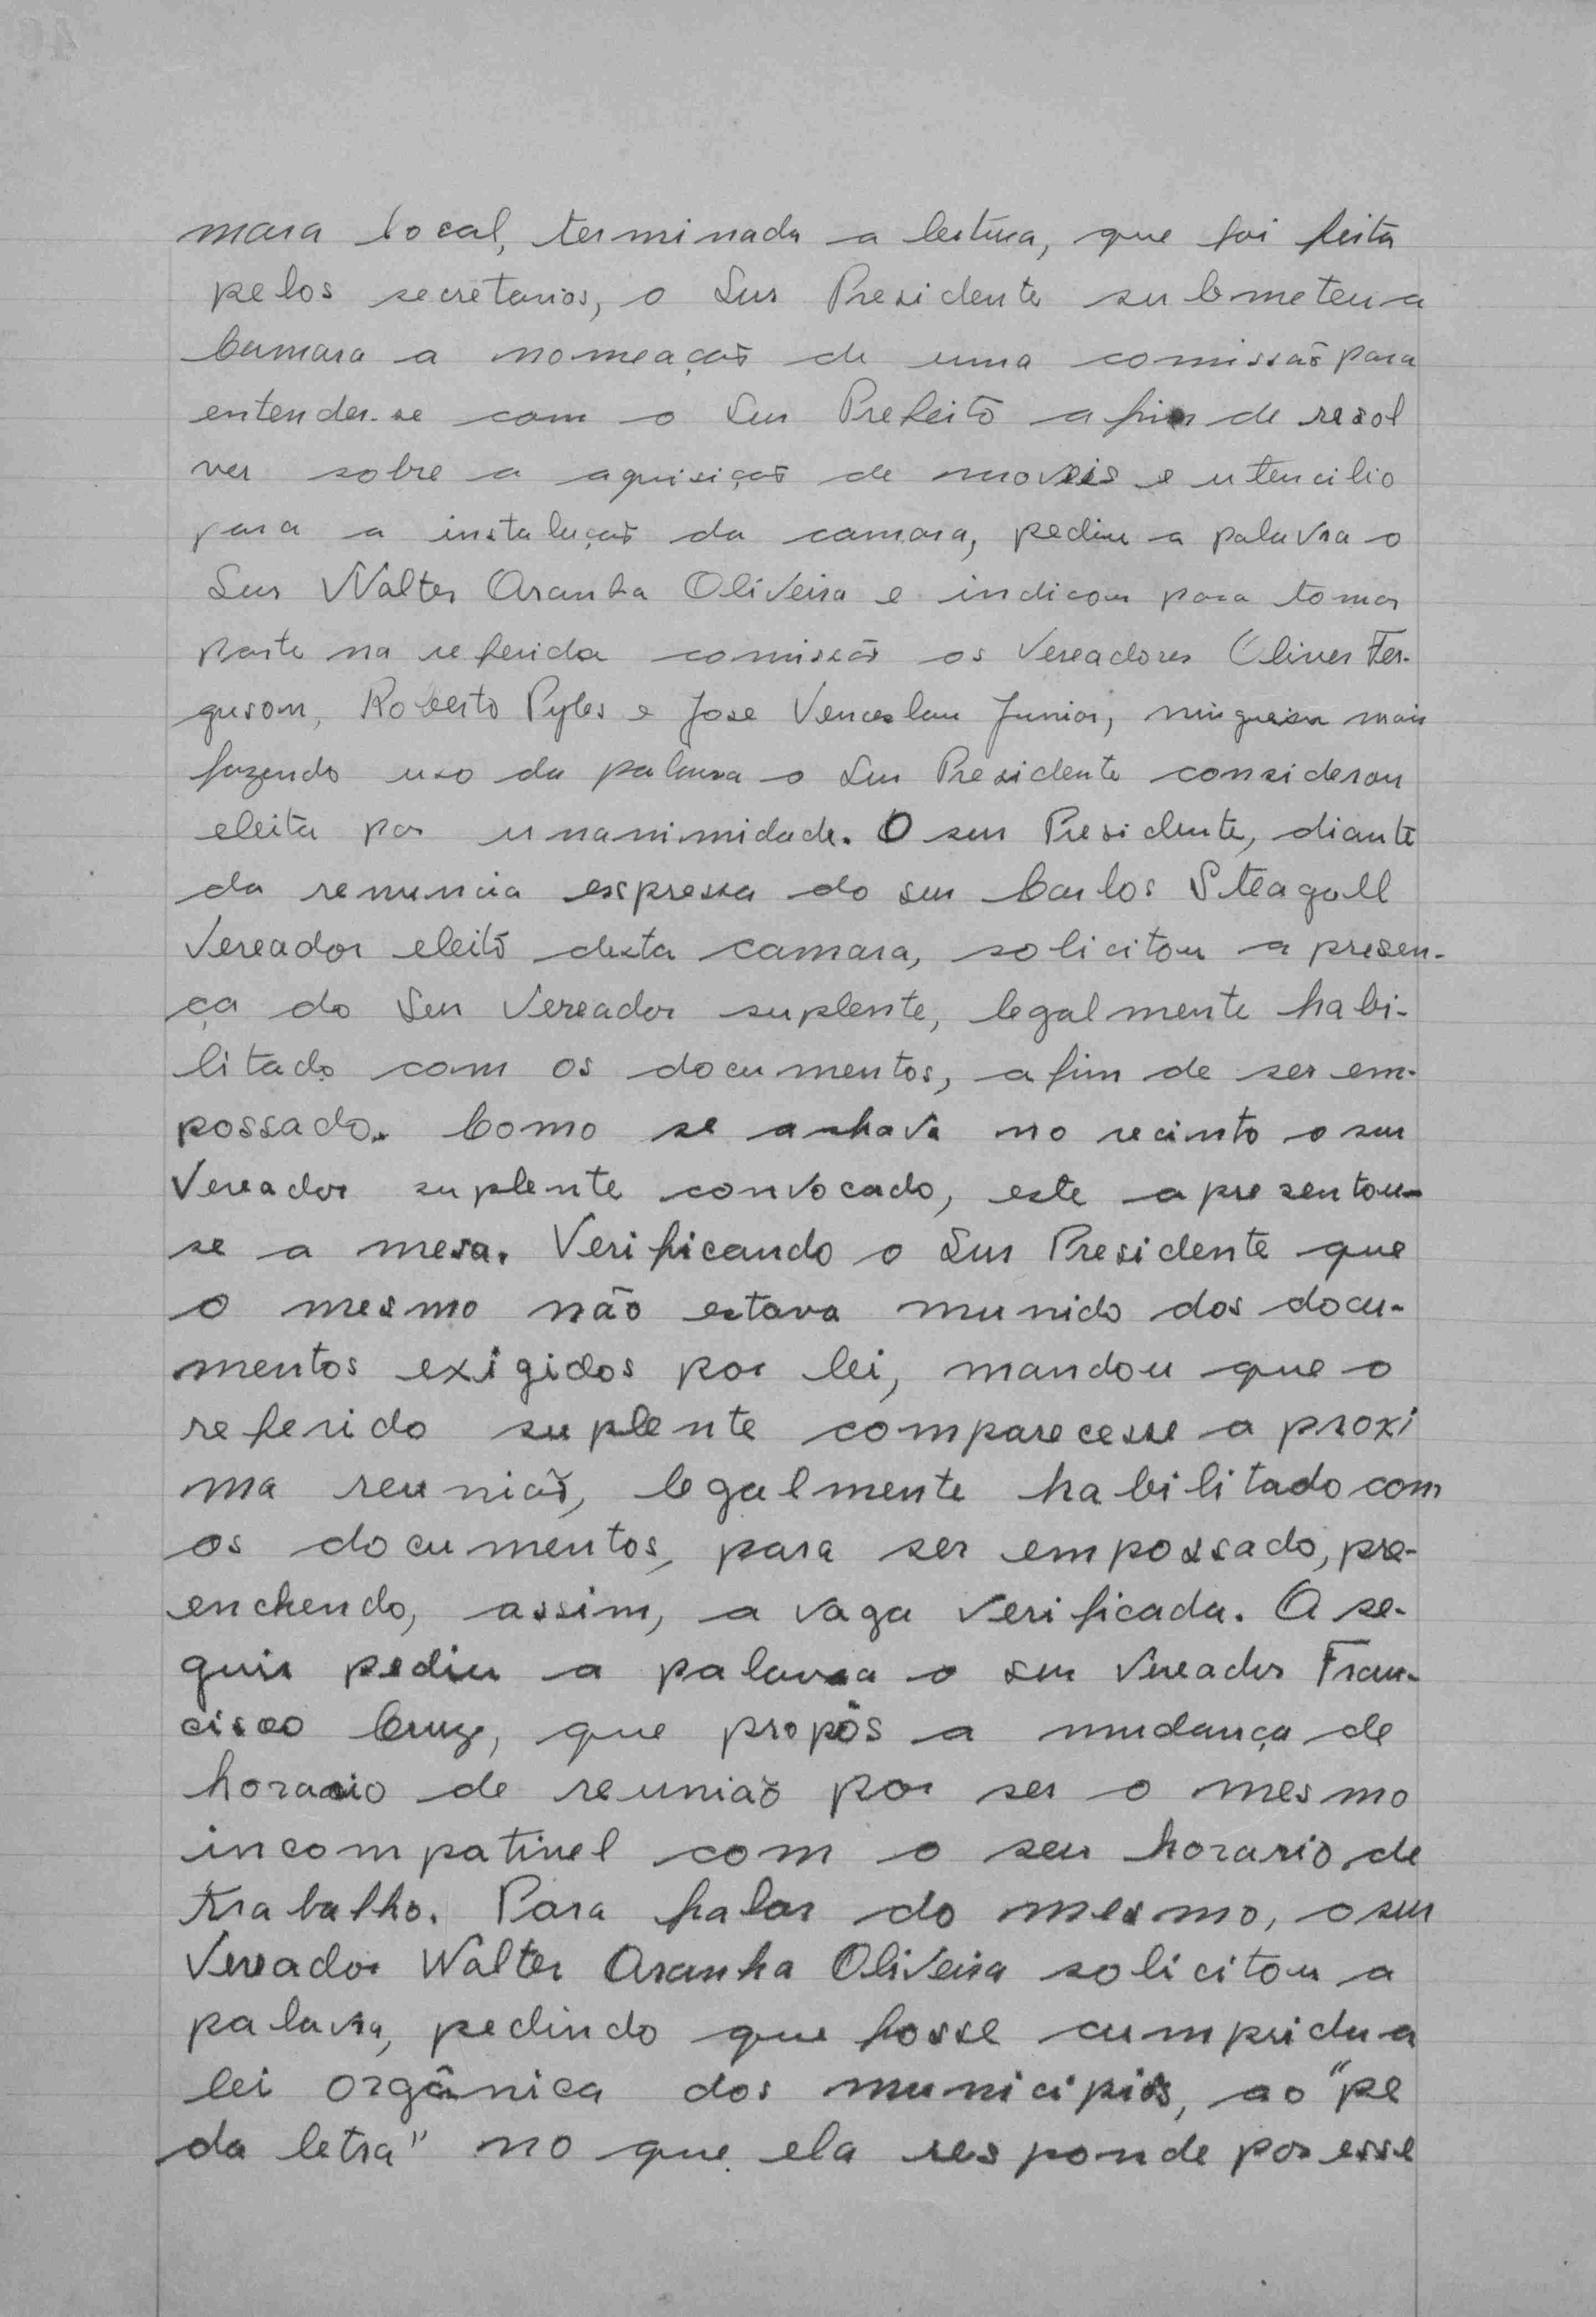 mara local, terminada a leitura, que foi feita
pelos secretarios, o Snr Presidente submeteu a
Camara a nomeação de uma comissão para
entender-se com o Snr Prefeito afim de resol
ver sobre a aquisição de moveis e utencilio
para a instalação da camara, pediu a palavra o
Snr Walter Aranha Oliveira e indicou para tomar
parte na referida comissão os Vereadores Oliver Fer-
guson, Roberto Pyles e Jose Venceslau Junior, ninguem mais
fazendo uso da palavra o Snr Presidente considerou
eleita por unanimidade. O snr Presidente, diante
da renuncia expressa do snr Carlos Steagall
Vereador eleito desta camara, solicitou a presen-
ça do Snr Vereador suplente, legalmente habi-
litado com os documentos, afim de ser em-
possado. Como se achava no recinto o snr
Vereador suplente convocado, este apresentou-
se a mesa. Verificando o Snr Presidente que
o mesmo não estava munido dos docu-
mentos exigidos por lei, mandou que o
referido suplente comparecesse a proxi
ma reunião, legalmente habilitado com
os documentos, para ser empossado, pre-
enchendo, assim, a vaga verificada. A se-
guir pediu a palavra o snr Vereador Fran-
cisco Cruz, que propôs a mudança de
horario de reunião por ser o mesmo
incompativel com o seu horario de
trabalho. Para falar do mesmo, o snr
Vereador Walter Aranha Oliveira solicitou a
palavra, pedindo que fosse cumprida a
lei orgânica dos municipios, ao "pe
da letra" no que ela responde por esse